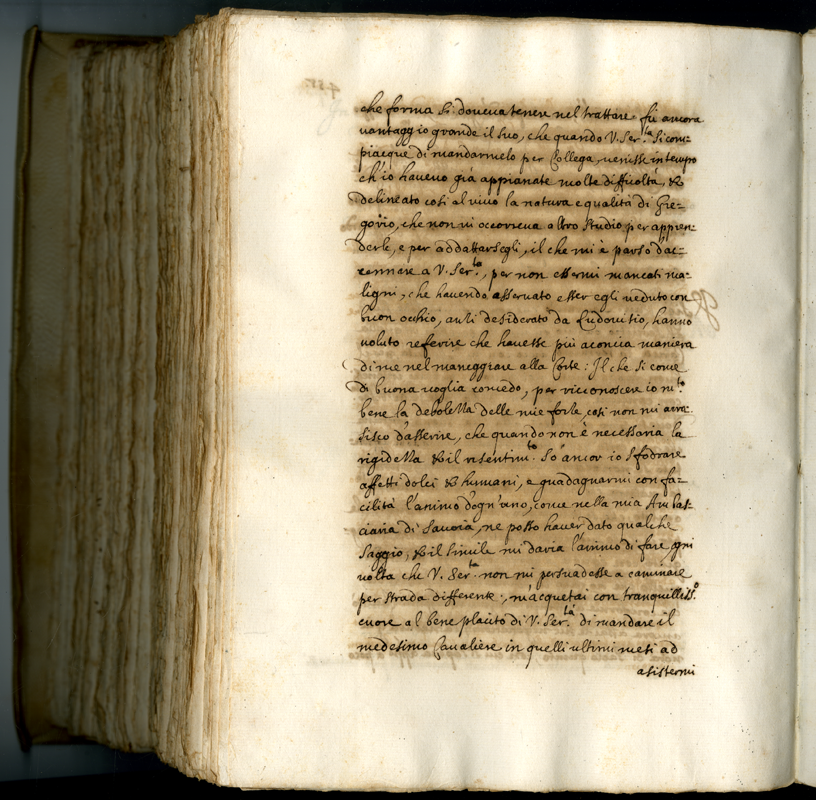 che forma si doueua tenere nel trattare fù ancora
uantaggio grande il suo, che quando V. Ser.ta si com=
piacque di mandarmelo per Collega, uenisse in tempo
ch'io haueuo già appianate molte difficoltà, &
delineato così al uiuo la natura e qualità di Gre=
gorio, che non ui occorreua altro studio per appren=
derle, e per addattarsegli, il che mi è parso d'ac=
cennare a V. Ser.ta, per non essermi mancati ma=
ligni, che hauendo osseruato esser egli ueduto con
buon occhio, anzi desiderato da Ludouisio, hanno
uoluto referire che hauesse più aconcia maniera
di me nel maneggiare alla Corte: Il che si come
di buona uoglia concedo, per riconoscere io m.to
bene la debolezza delle mie forze, così non mi arro=
sisco d'asserire, che quando non è necessaria la
rigidezza & il risentim.to so ancor io sfodrare
affetti dolci & humani, e guadagnarmi con fa=
cilità l'animo d'ogn'uno, come nella mia Ambas=
ciaria di Sauoia, ne posso hauer dato qualche
saggio, & il simile mi daria l'animo di fare ogni
uolta che V. Ser.ta non mi persuadesse a caminare
per strada differente; m'acquetai con tranquilliss.o
cuore al bene placito di V. Ser.tà di mandare il
medesimo Caualiere in quelli ultimi mesi ad
asistermi